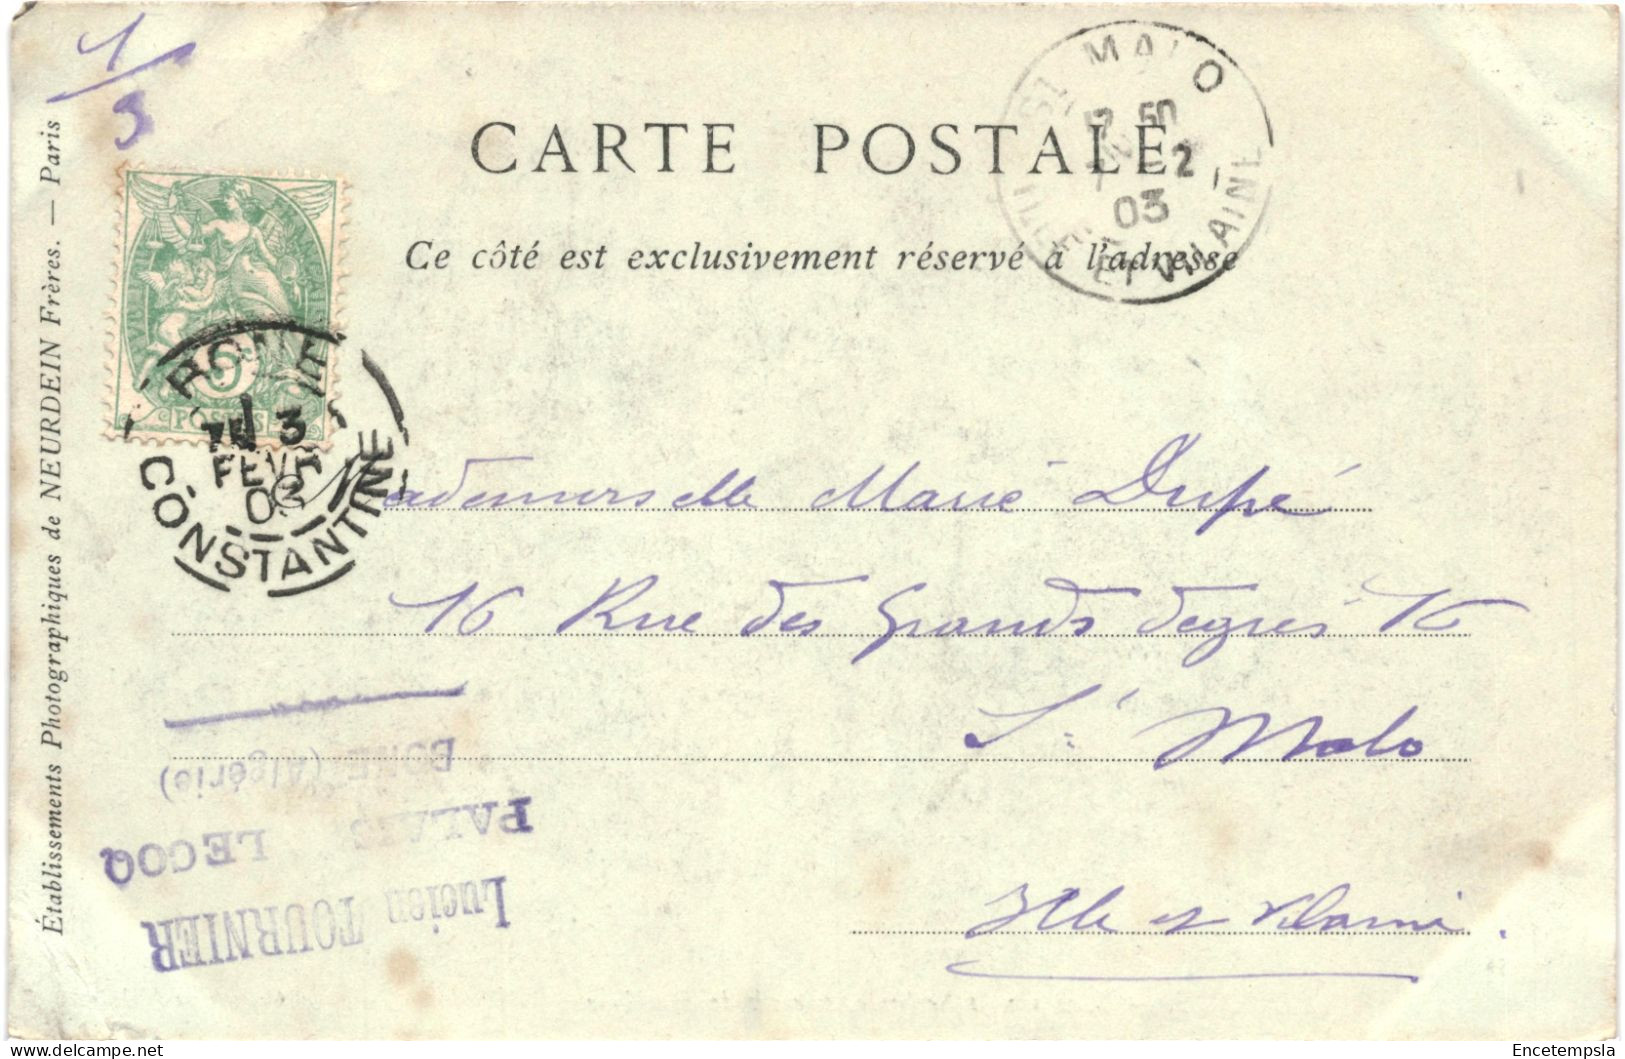 1/3
CARTE POSTALE
Ce côté est exclusivement réservé à l'adresse
Établissements Photographiques de NEURDEIN Frères. — Paris
ST MALO
12 50
2
03
ILLE ET VILAINE
POSTES
BONE
3
FEVR
03
CONSTANTINE
Mademoiselle Marie Dupé
16 Rue des Grands degrés 16
St Malo
Ille et Vilaine.
Lucien TOURNIER
PALAIS LECOQ
BONE (Algérie)
Encetempsla